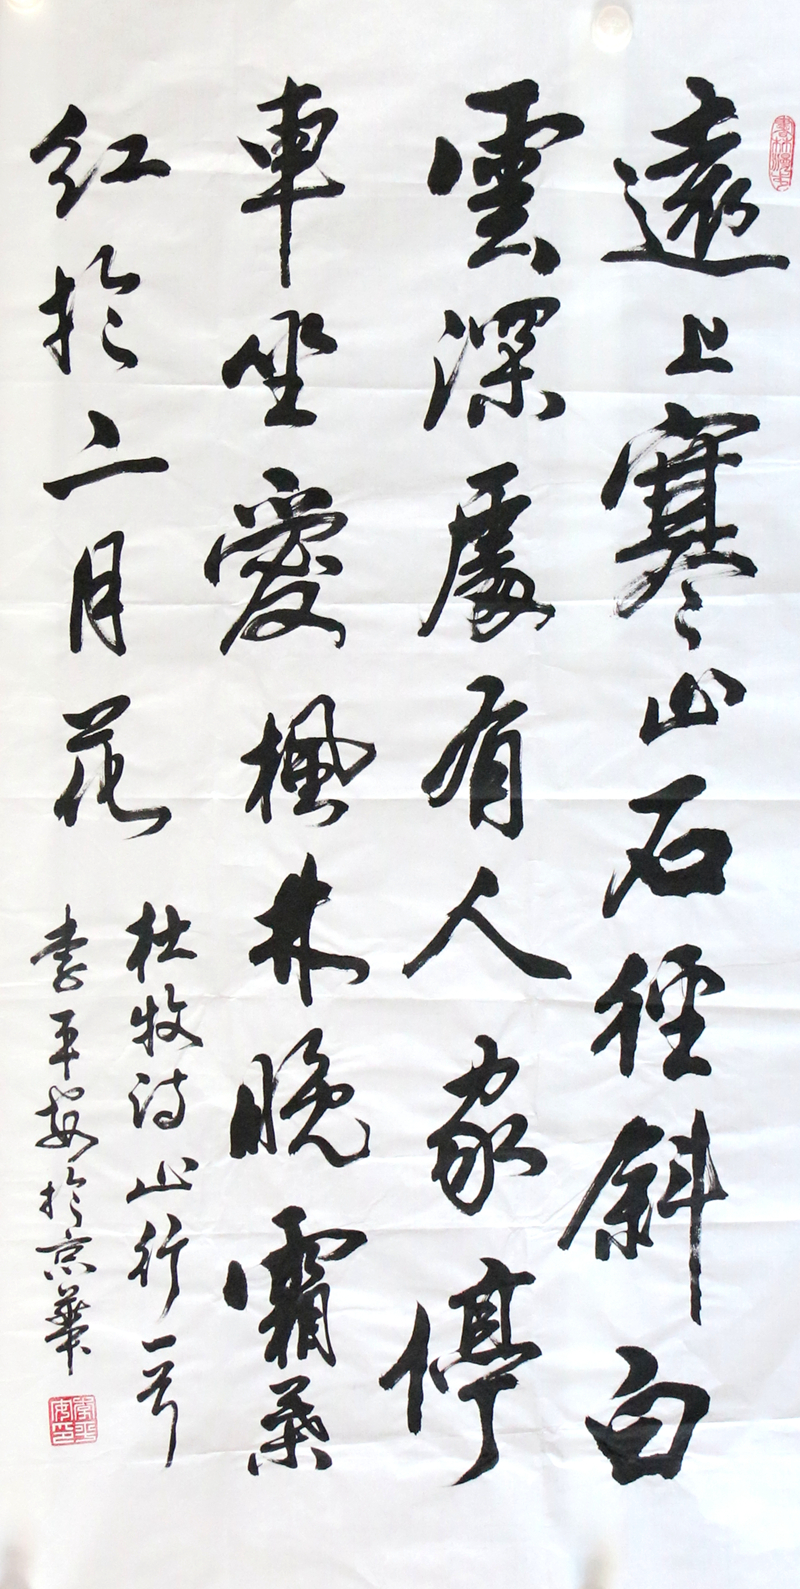 遠上寒山石徑斜白
雲深處有人家停
車坐愛楓林晚霜葉
紅於二月花
杜牧詩山行一首
李平安於京華
李平安印